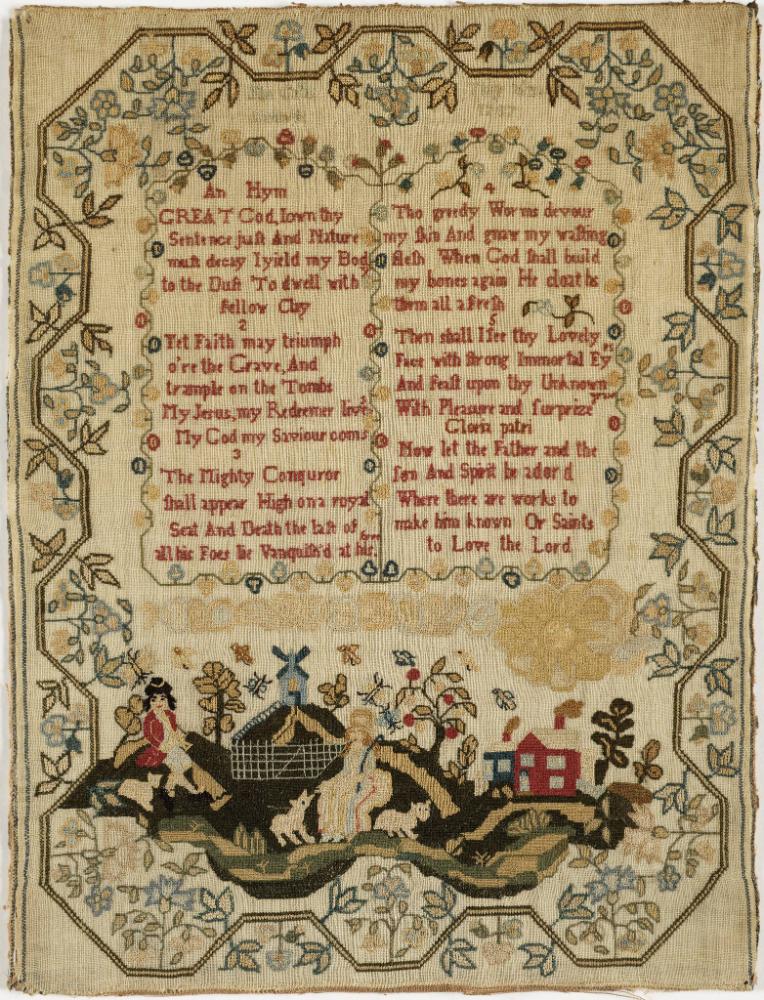 An Hym
GREAT God, Iown thy
Sentence just And Nature
must decay I yield my Body
to the Dust To dwell with
fellow Clay
2
Yet Faith may triumph
o're the Grave, And
trample on the Tombs
My Jesus, my Redeemer lives
My God my Saviour coms
3
The Mighty Conquror
shall appear High on a royal
Seat And Death the last of
all his Foes lie Vanquish'd at his feet
4
Tho greedy Worms devour
my skin And gnaw my wasting
flesh When God shall build
my bones again He cloaths
them all afresh
5
Then shall I see thy Lovely
Face with strong Immortal Eyes
And feast upon thy Unknown
With Pleasure and surprize
Gloria patri
Now let the Father and the
son And Spirit be ador'd
Where there are works to
make him known Or Saints
to Love the Lord